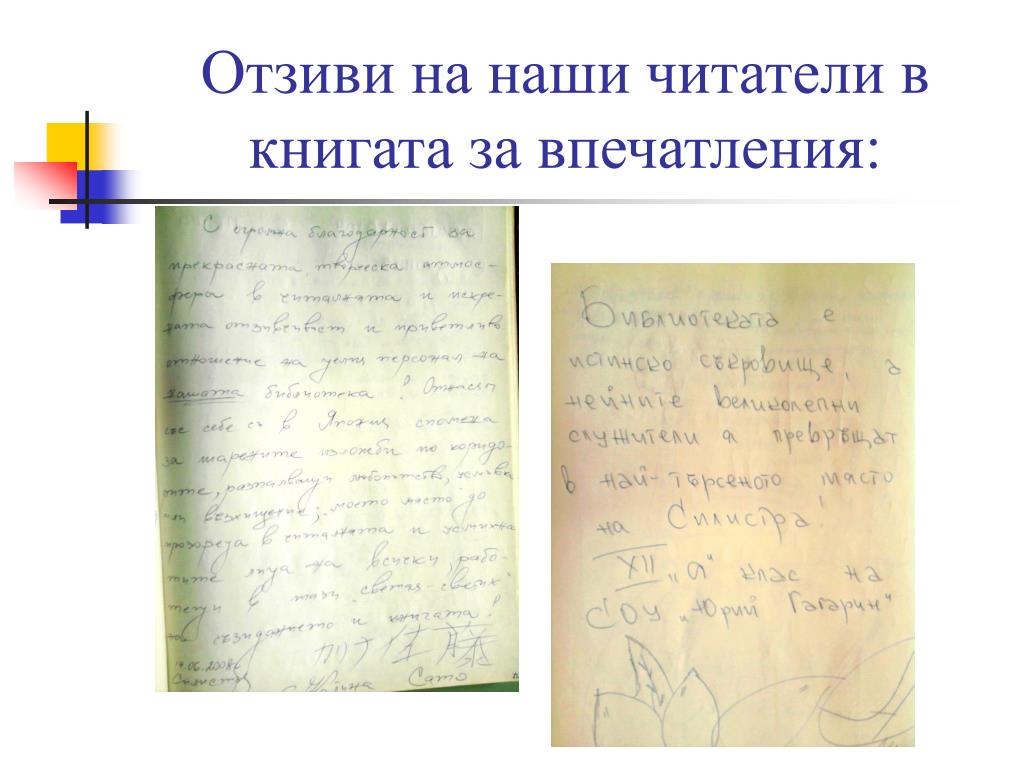 Отзиви на наши читатели в
книгата за впечатления:
С огромна благодарност за
прекрасната творческа атмос-
фера в читалнята и искре-
ната отзивчивост и приветливо
отношение на целия персонал на
нашата библиотека! Отнасям
със себе си в Япония спомена
за шарените изложби по коридо-
рите, разпалващи любопитство,
или възхищение; моето място до
прозореца в читалнята и усмихна
тите лица на всички, рабо-
тещи в тази "светая-светих"
на съзиданието и книгата!
佐藤
14.06.2008г.
Силистра Сато
Библиотеката е
истинско съкровище, а
нейните великолепни
служители я превръщат
в най-търсеното място
на Силистра!
XII "а" клас на
СОУ "Юрий Гагарин"